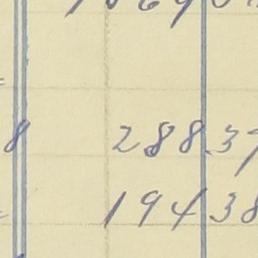 8 288 37
194 38